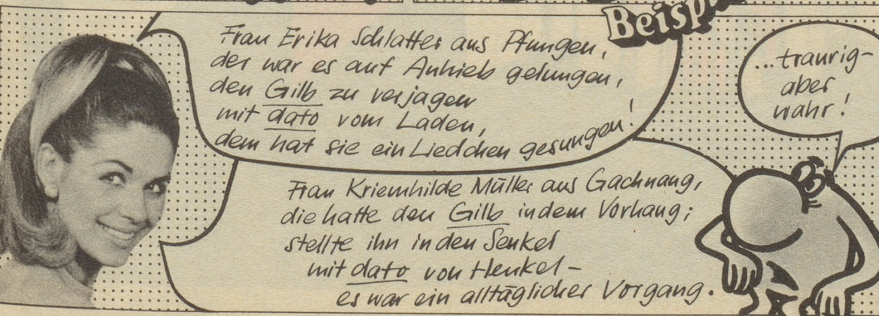 Frau Erika Schlatter aus Pfungen,
der war es auf Anhieb gelungen,
den Gilb zu verjagen
mit dato vom Laden,
dem hat sie ein Liedchen gesungen!
...traurig-
aber
wahr!
Frau Kriemhilde Müller aus Gachnang,
die hatte den Gilb in dem Vorhang;
stellte ihn in den Senkel
mit dato von Henkel-
es war ein alltäglicher Vorgang.